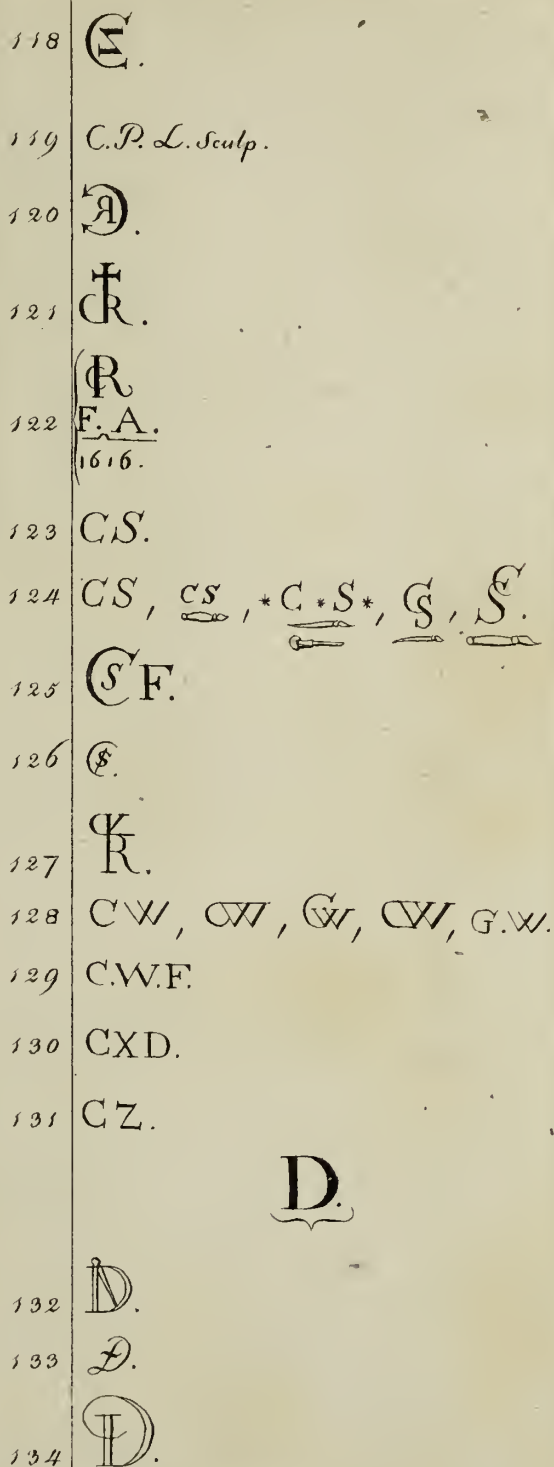 118
119 C.P.L. Sculp.
120
121 CR.
122 CR
F. A.
1616.
123 CS.
124 CS, CS, *C*S*, CS, CS.
125 CS F.
126
127
128 CW, CW, GW, CW, G.W.
129 C.W.F.
130 CXD.
131 CZ.
D.
132
133 D.
134